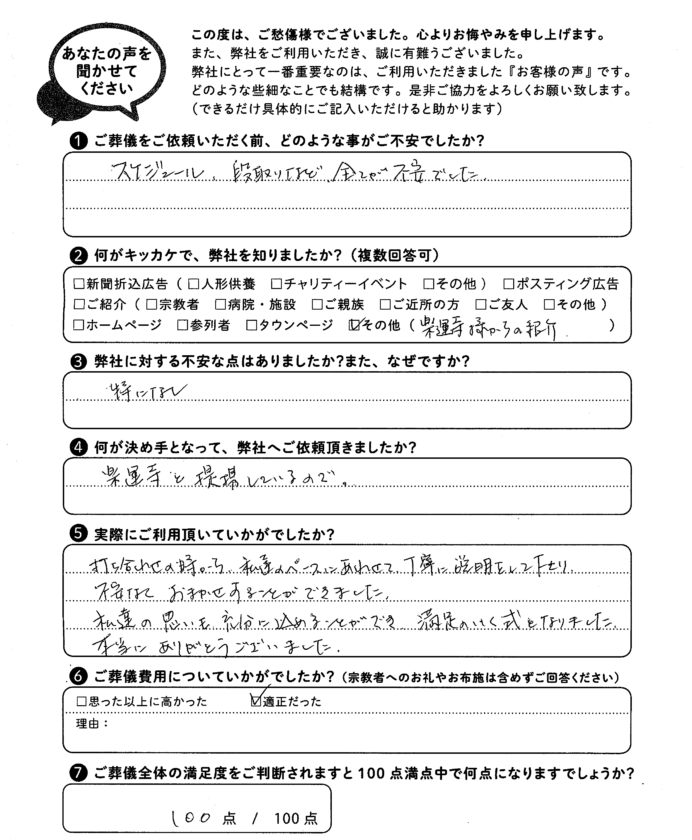 あなたの声を
聞かせて
ください
この度は、ご愁傷様でございました。心よりお悔やみを申し上げます。
また、弊社をご利用いただき、誠に有難うございました。
弊社にとって一番重要なのは、ご利用いただきました『お客様の声』です。
どのような些細なことでも結構です。是非ご協力をよろしくお願い致します。
(できるだけ具体的にご記入いただけると助かります)
❶ ご葬儀をご依頼いただく前、どのような事がご不安でしたか?
スケジュール、段取りなど、全てが不安でした。
❷ 何がキッカケで、弊社を知りましたか?(複数回答可)
□新聞折込広告(□人形供養 □チャリティーイベント □その他) □ポスティング広告
□ご紹介(□宗教者 □病院・施設 □ご親族 □ご近所の方 □ご友人 □その他)
□ホームページ □参列者 □タウンページ ☑その他(運寺様からの紹介)
❸ 弊社に対する不安な点はありましたか?また、なぜですか?
特になし
❹ 何が決め手となって、弊社へご依頼頂きましたか?
運寺と提携しているので。
❺ 実際にご利用頂いていかがでしたか?
打ち合わせの時から、私達のペースにあわせて、丁寧に説明をして下さり、
不安なく おまかせすることができました。
私達の思いも充分に込めることができ 満足のいく式となりました。
本当に ありがとうございました。
❻ ご葬儀費用についていかがでしたか?(宗教者へのお礼やお布施は含めずご回答ください)
□思った以上に高かった ☑適正だった
理由:
❼ ご葬儀全体の満足度をご判断されますと100点満点中で何点になりますでしょうか?
100 点 / 100点